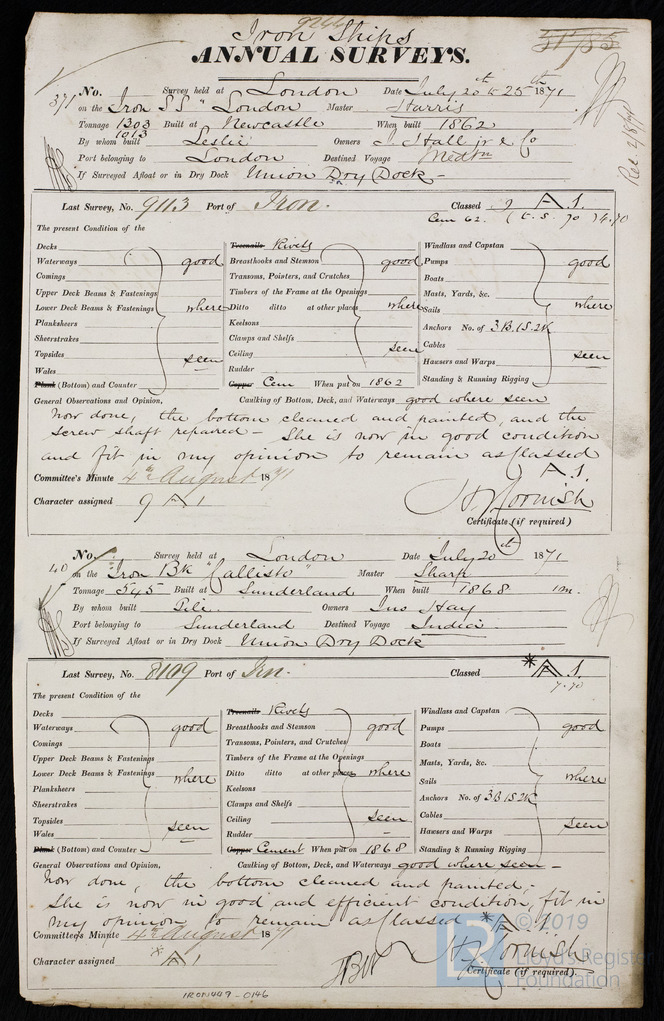 Iron Ships
ANNUAL SURVEYS.
No. Survey held at London Date July 20th to 25th 1871
371 on the Iron SS "London Master Harris
Tonnage 1303 Built at Newcastle When built 1862
1013
By whom built Leslie Owners J. Hall jr & Co
Port belonging to London Destined Voyage Medtn
If Surveyed Afloat or in Dry Dock Union Dry Dock
Rec 2/8/71
Last Survey, No. 9113 Port of Iron. Classed 9 A 1.
Cem 62.
The present Condition of the
Decks Treenails Rivets Windlass and Capstan
Waterways good Breasthooks and Stemson good Pumps good
Comings Transoms, Pointers, and Crutches Boats
Upper Deck Beams & Fastenings Timbers of the Frame at the Openings Masts, Yards, &c.
Lower Deck Beams & Fastenings where Ditto ditto at other places where Sails where
Planksheers Keelsons Anchors No. of 3B.1S.2K
Sheerstrakes Clamps and Shelfs Cables
Topsides seen Ceiling seen Hausers and Warps seen
Wales Rudder Standing & Running Rigging
Plank (Bottom) and Counter Copper Cem When put on 1862
General Observations and Opinion, Caulking of Bottom, Deck, and Waterways good where seen
Now done, the bottom cleaned and painted, and the
screw shaft repaired - She is now in good condition
and fit in my opinion to remain as classed
A 1.
Committee's Minute 4th August 1871
Character assigned 9 A 1
H Cornish
Certificate (if required)
No. Survey held at London Date July 20th 1871
40 on the Iron Bk "Callisto" Master Sharp
Tonnage 545 Built at Sunderland When built 1868 1m.
By whom built Pile Owners Jno Hay
Port belonging to Sunderland Destined Voyage India
If Surveyed Afloat or in Dry Dock Union Dry Dock
Last Survey, No. 8109 Port of Irn. Classed * A 1.
7.70
The present Condition of the
Decks Treenails Rivets Windlass and Capstan
Waterways good Breasthooks and Stemson good Pumps good
Comings Transoms, Pointers, and Crutches Boats
Upper Deck Beams & Fastenings Timbers of the Frame at the Openings Masts, Yards, &c.
Lower Deck Beams & Fastenings where Ditto ditto at other places where Sails where
Planksheers Keelsons Anchors No. of 3B.1S.2K
Sheerstrakes Clamps and Shelfs Cables
Topsides seen Ceiling seen Hausers and Warps seen
Wales Rudder Standing & Running Rigging
Plank (Bottom) and Counter Copper Cement When put on 1868
General Observations and Opinion, Caulking of Bottom, Deck, and Waterways good where seen
Now done, the bottom cleaned and painted,
She is now in good and efficient condition, fit in
my opinion to remain as classed * A 1.
Committee's Minute 4th August 1871
Character assigned * A 1
H Cornish
Certificate (if required).
IRON447-0146
© 2019
Lloyd's Register
Foundation